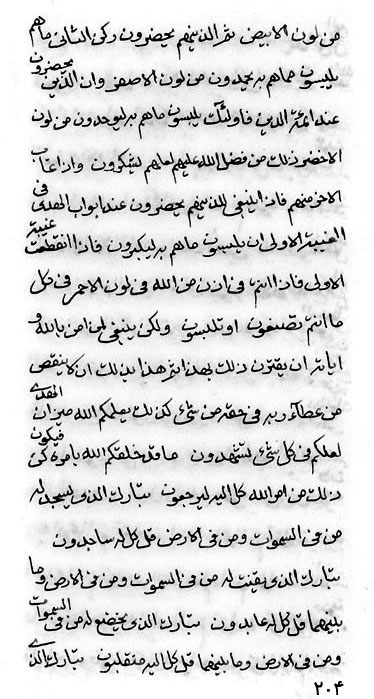 من لون الابيض ثم الذينهم يحضرون ركن الثاني ماهم
يلبسون ماهم به يحمدون من لون الاصفر وان الذين يحضرون
عند ائمة الدين فاولئك يلبسون ماهم به ليوحدون من لون
الاخضر ذلك من فضل الله عليهم لعلهم يشكرون واذا غاب
الاخر منهم فاذا ينبغي للذينهم يحضرون عند ابواب الهدى في
الغيبة الاولى ان يلبسون ماهم به ليكبرون فاذا انقطعت غيبة
الاولى فاذا انتم في اذن من الله في لون الاحمر في كل
ما انتم تصنعون او تلبسون ولكن ينبغي لمن امن بالله و
اياته ان يقترن ذلك بهذا ثم هذا بذلك ان لا ينقص
من عطاء ربه في حقه من شئ كذلك يعلمكم الله ميزان الهدى
لعلكم في كل شئ لتشهدون ما قد خلقكم الله بامره كن فيكون
ذلك من امر الله كل اليه ليرجعون تبارك الذي يسجد له
من في السموات ومن في الارض قل كل له ساجدون
تبارك الذي يقنت له من في السموات ومن في الارض وما
بينهما قل كل له عابدون تبارك الذي يخضع له من في السموات
ومن في الارض وما بينهما قل كل اليه منقلبون تبارك الذي
۲۰۴